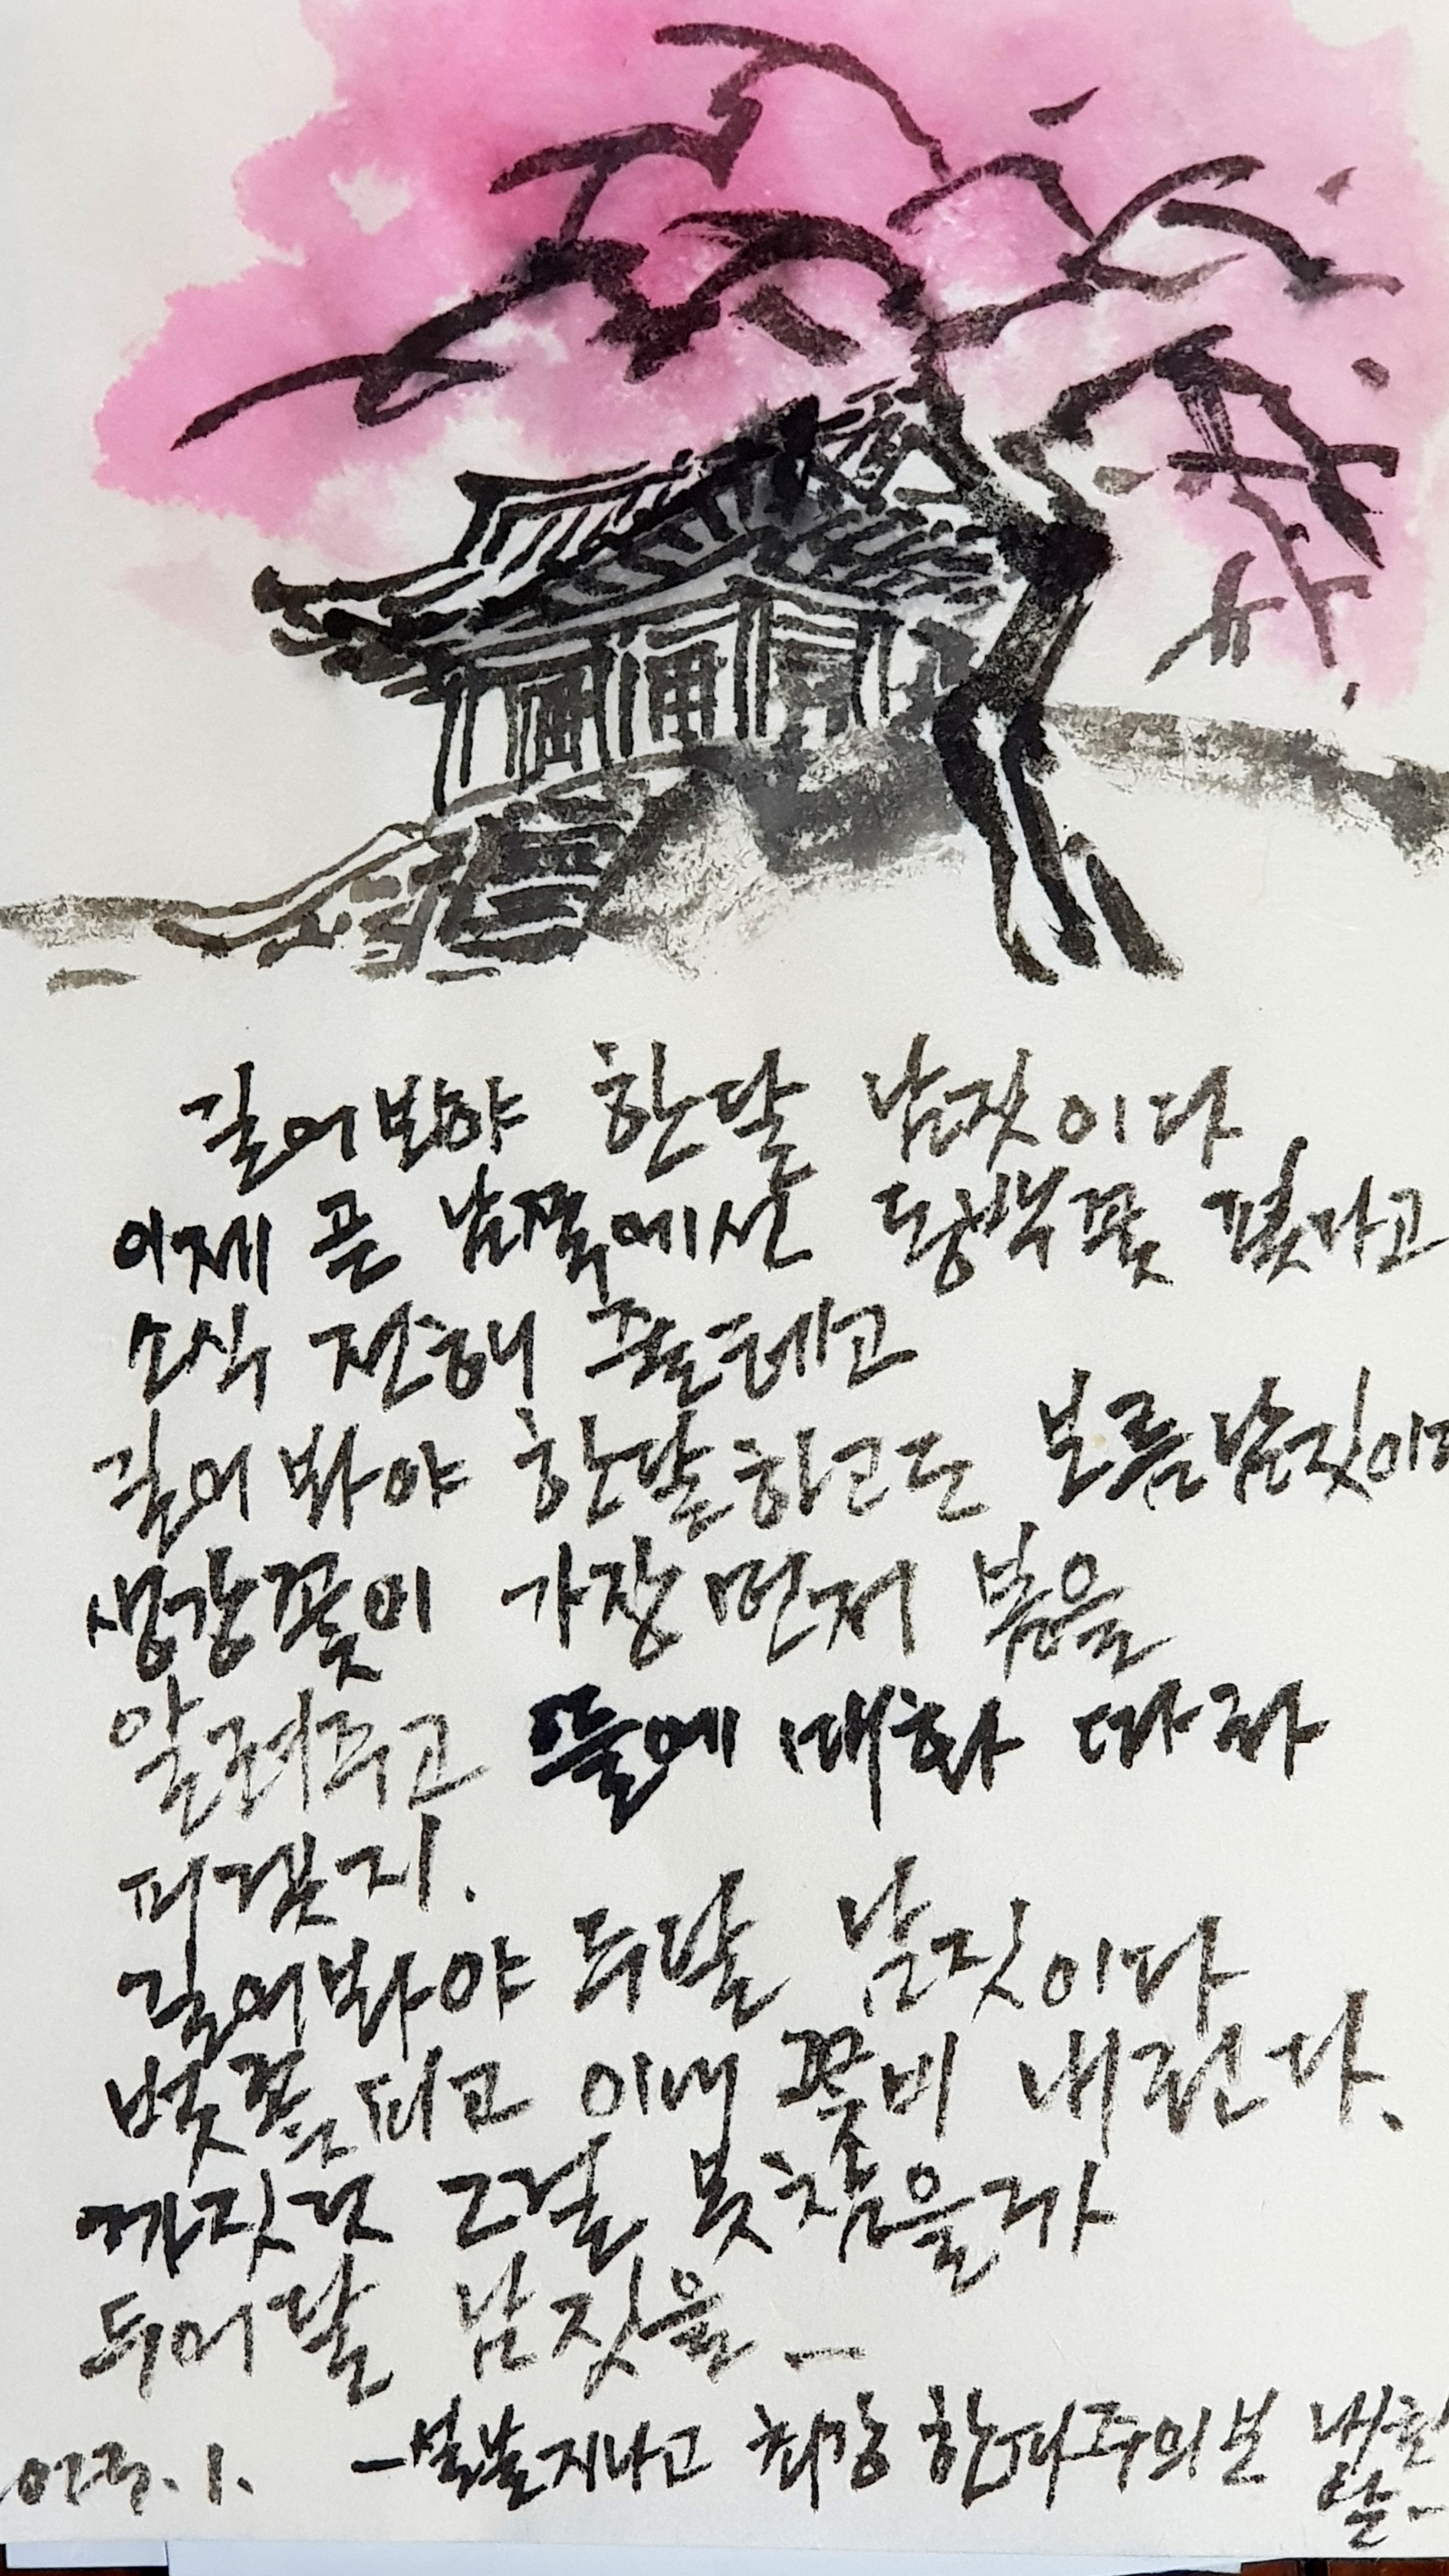 길어봐야 한달 남짓이다
이제 곧 남쪽에선 동백꽃 폈다고
소식 전해 줄테고
길어 봐야 한달하고도 보름남짓이다
생강꽃이 가장 먼저 봄을
알려주고 뜰에 매화 따라
피겠지.
길어봐야 두달 남짓이다
벚꽃피고 이내 꽃비 내린다.
까짓것 그걸 못참을라
두어달 남짓을 –
–설날지나고 최강 한파주의보 내린
날–
2025. 1.